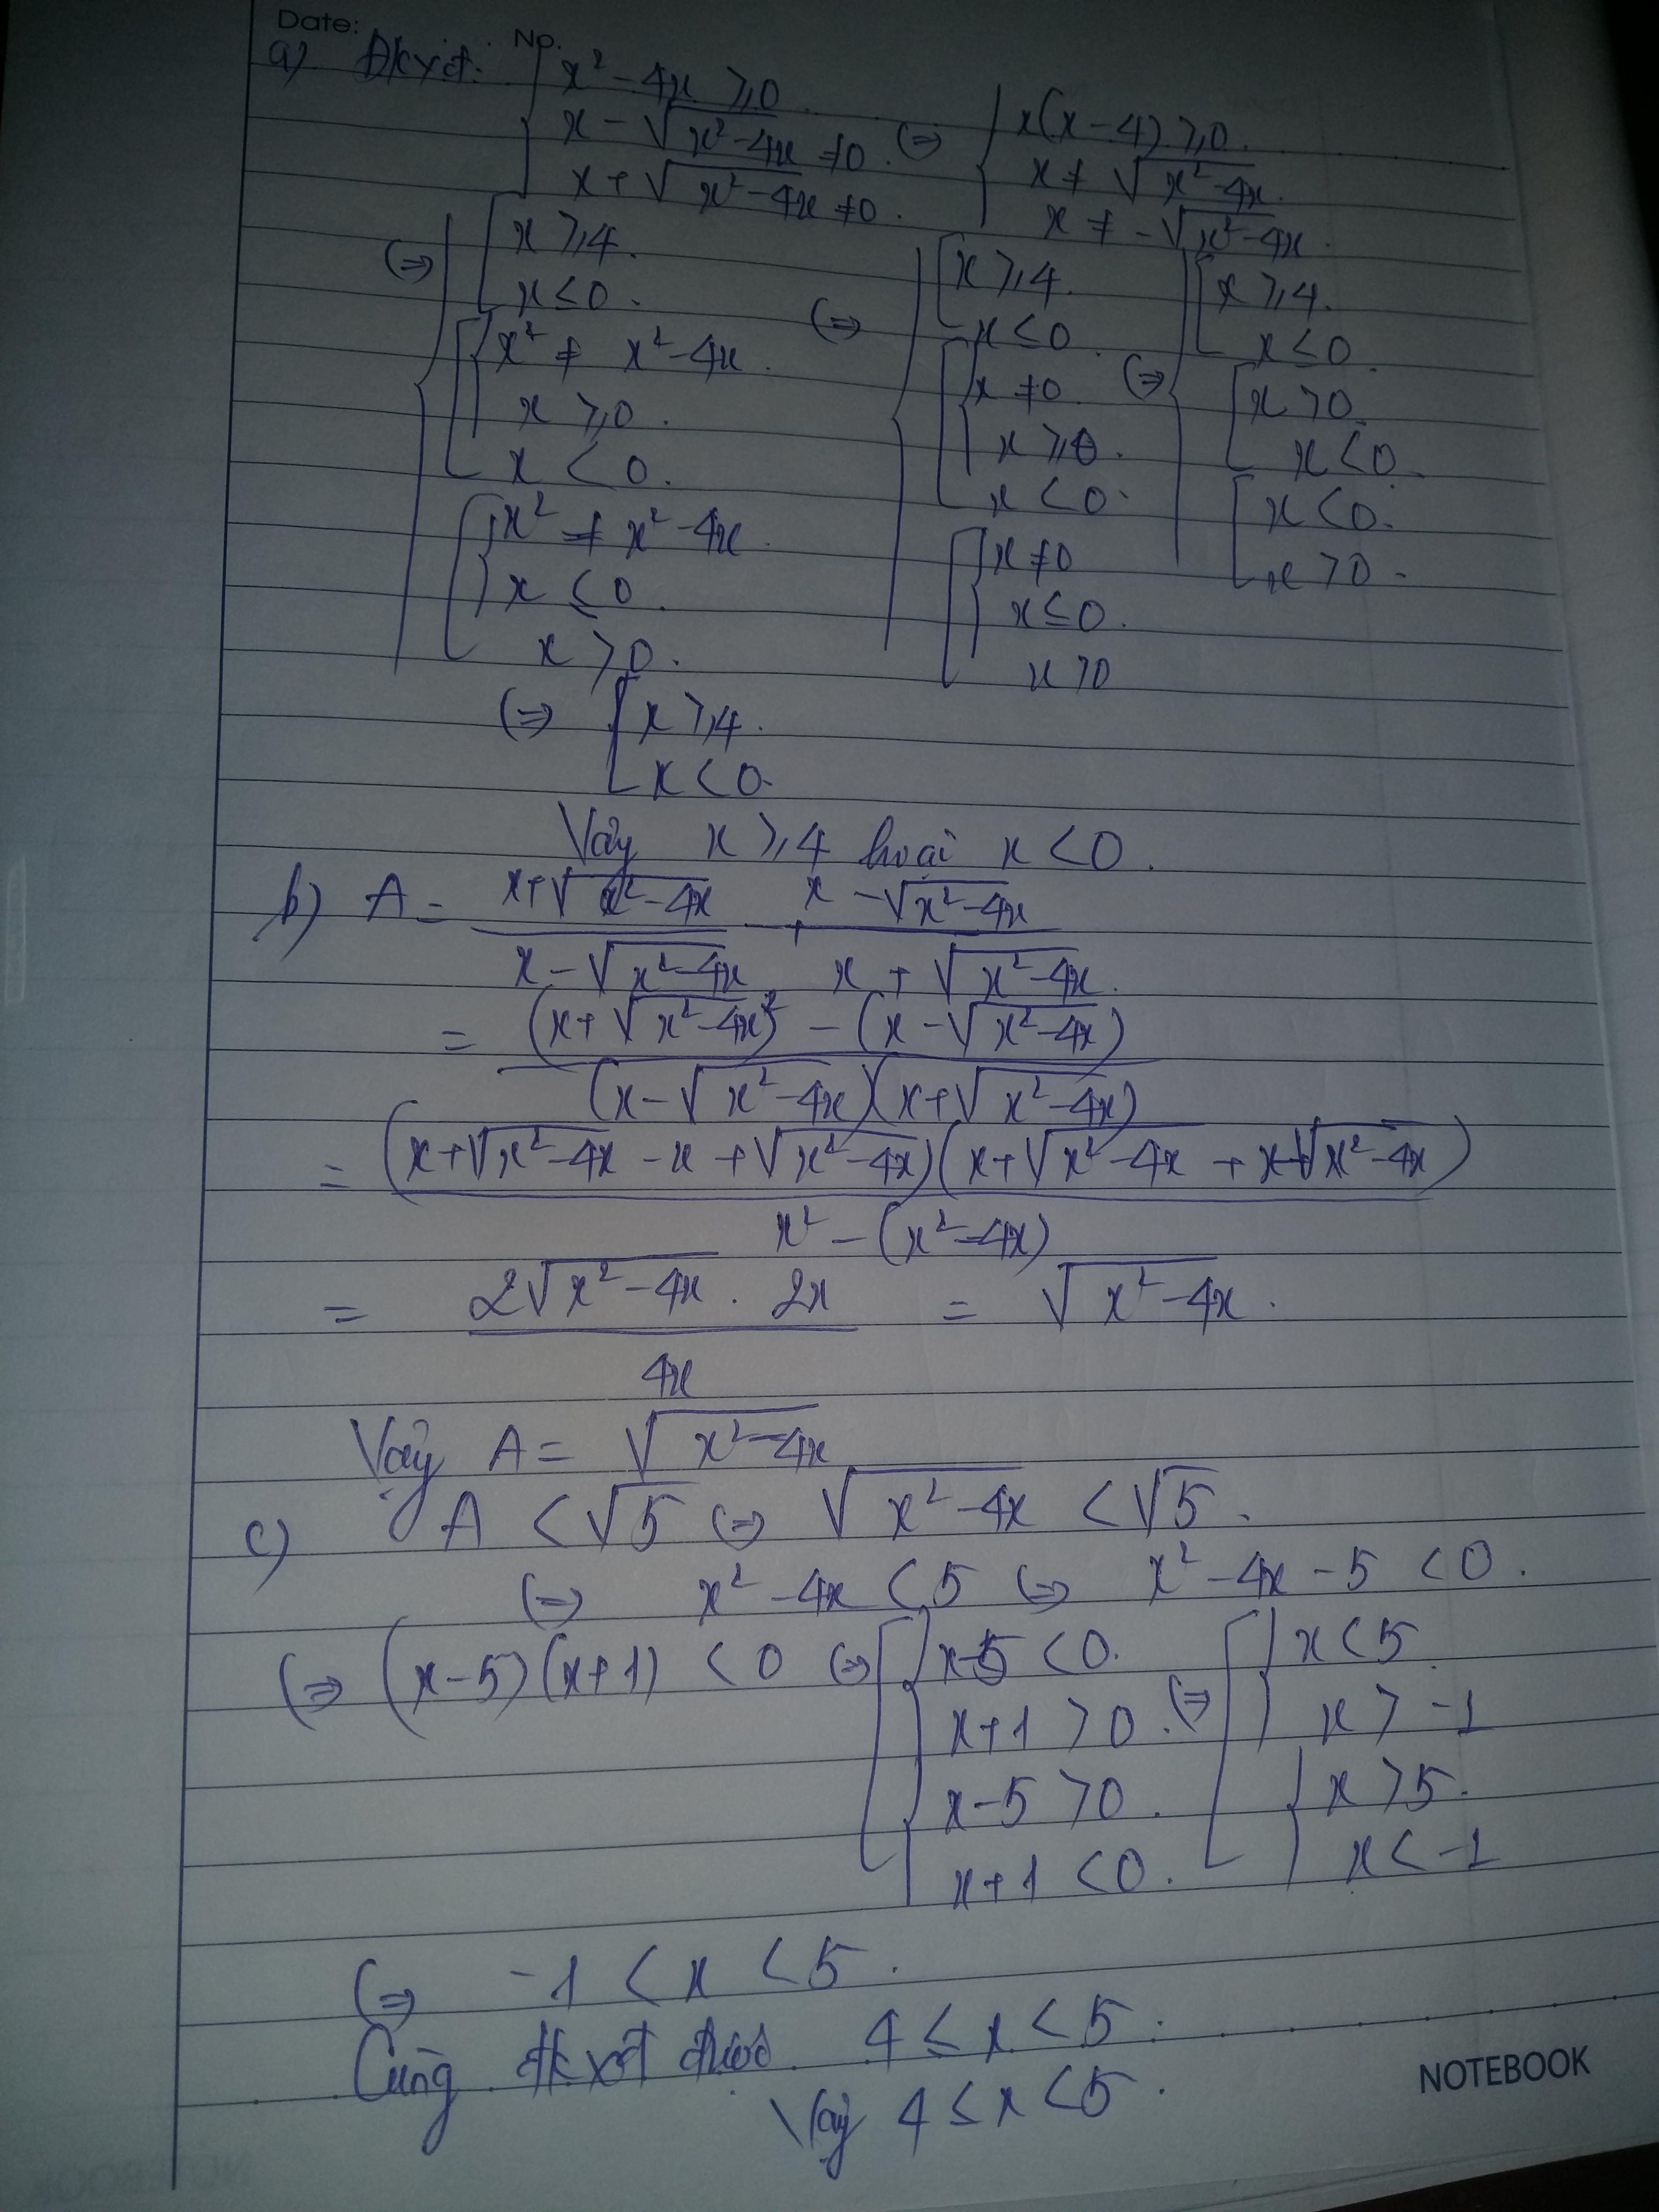 Date: No.
a) Đkxđ: { x² - 4x ≥ 0. x - √(x²-4x) ≠ 0. x + √(x²-4x) ≠ 0. (=) { x(x-4) ≥ 0. x ≠ √(x²-4x). x ≠ -√(x²-4x).
(=) { [ x ≥ 4. x ≤ 0. [ { x² ≠ x²-4x. x ≥ 0. x < 0. [ { x² ≠ x²-4x. x ≤ 0. x > 0.
(=) { [ x ≥ 4. x ≤ 0. [ { x ≠ 0. x ≥ 0. x < 0. [ { x ≠ 0 x ≤ 0. x > 0
(=) { [ x ≥ 4. x ≤ 0. [ x > 0. x < 0. [ x < 0. x > 0.
(=) [ x ≥ 4. x < 0.
Vậy x ≥ 4 hoặc x < 0.
b) A = (x+√(x²-4x))/(x-√(x²-4x)) - (x-√(x²-4x))/(x+√(x²-4x)).
= ((x+√(x²-4x))² - (x-√(x²-4x)))/((x-√(x²-4x))(x+√(x²-4x)))
= ((x+√(x²-4x) - x + √(x²-4x))(x+√(x²-4x) + x-√(x²-4x)))/(x² - (x²-4x))
= (2√(x²-4x) . 2x)/(4x) = √(x²-4x).
Vậy A = √(x²-4x)
c) A < √5 (=) √(x²-4x) < √5.
(=) x² - 4x < 5 (=) x² - 4x - 5 < 0.
(=) (x-5)(x+1) < 0 (=) [ { x-5 < 0. x+1 > 0. { x-5 > 0. x+1 < 0. (=) [ { x < 5. x > -1 { x > 5. x < -1
(=) -1 < x < 5.
Cùng đkxđ được 4 ≤ x < 5.
Vậy 4 ≤ x < 5.
NOTEBOOK